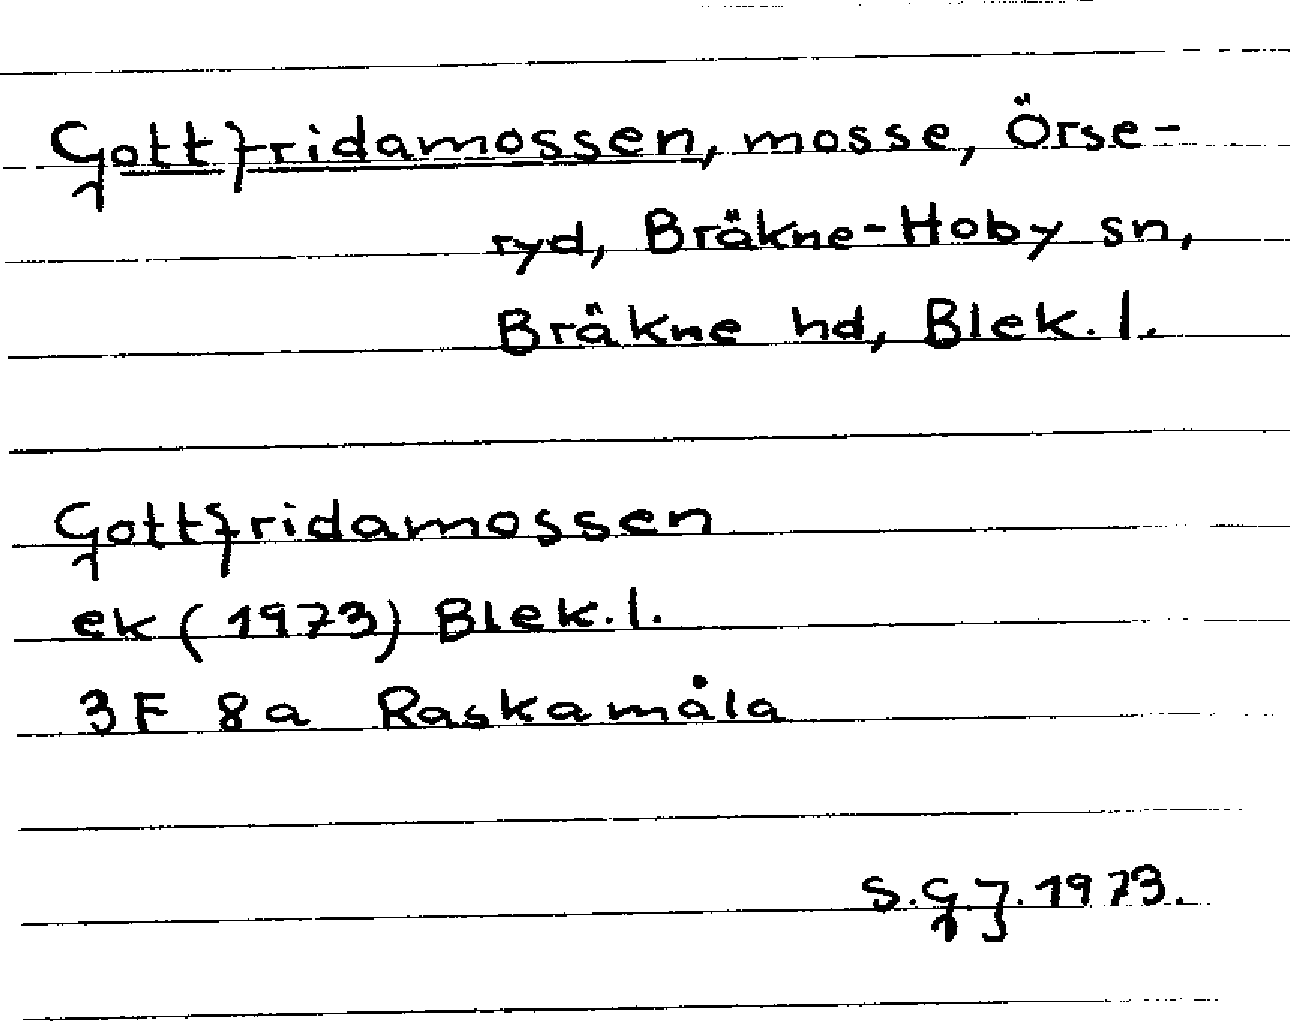 Gottfridamossen, mosse, Örse-
ryd, Bräkne-Hoby sn,
Bräkne hd, Blek. l.
Gottfridamossen
ek (1973) Blek. l.
3F 8a Raskamåla
S. G J. 1973.